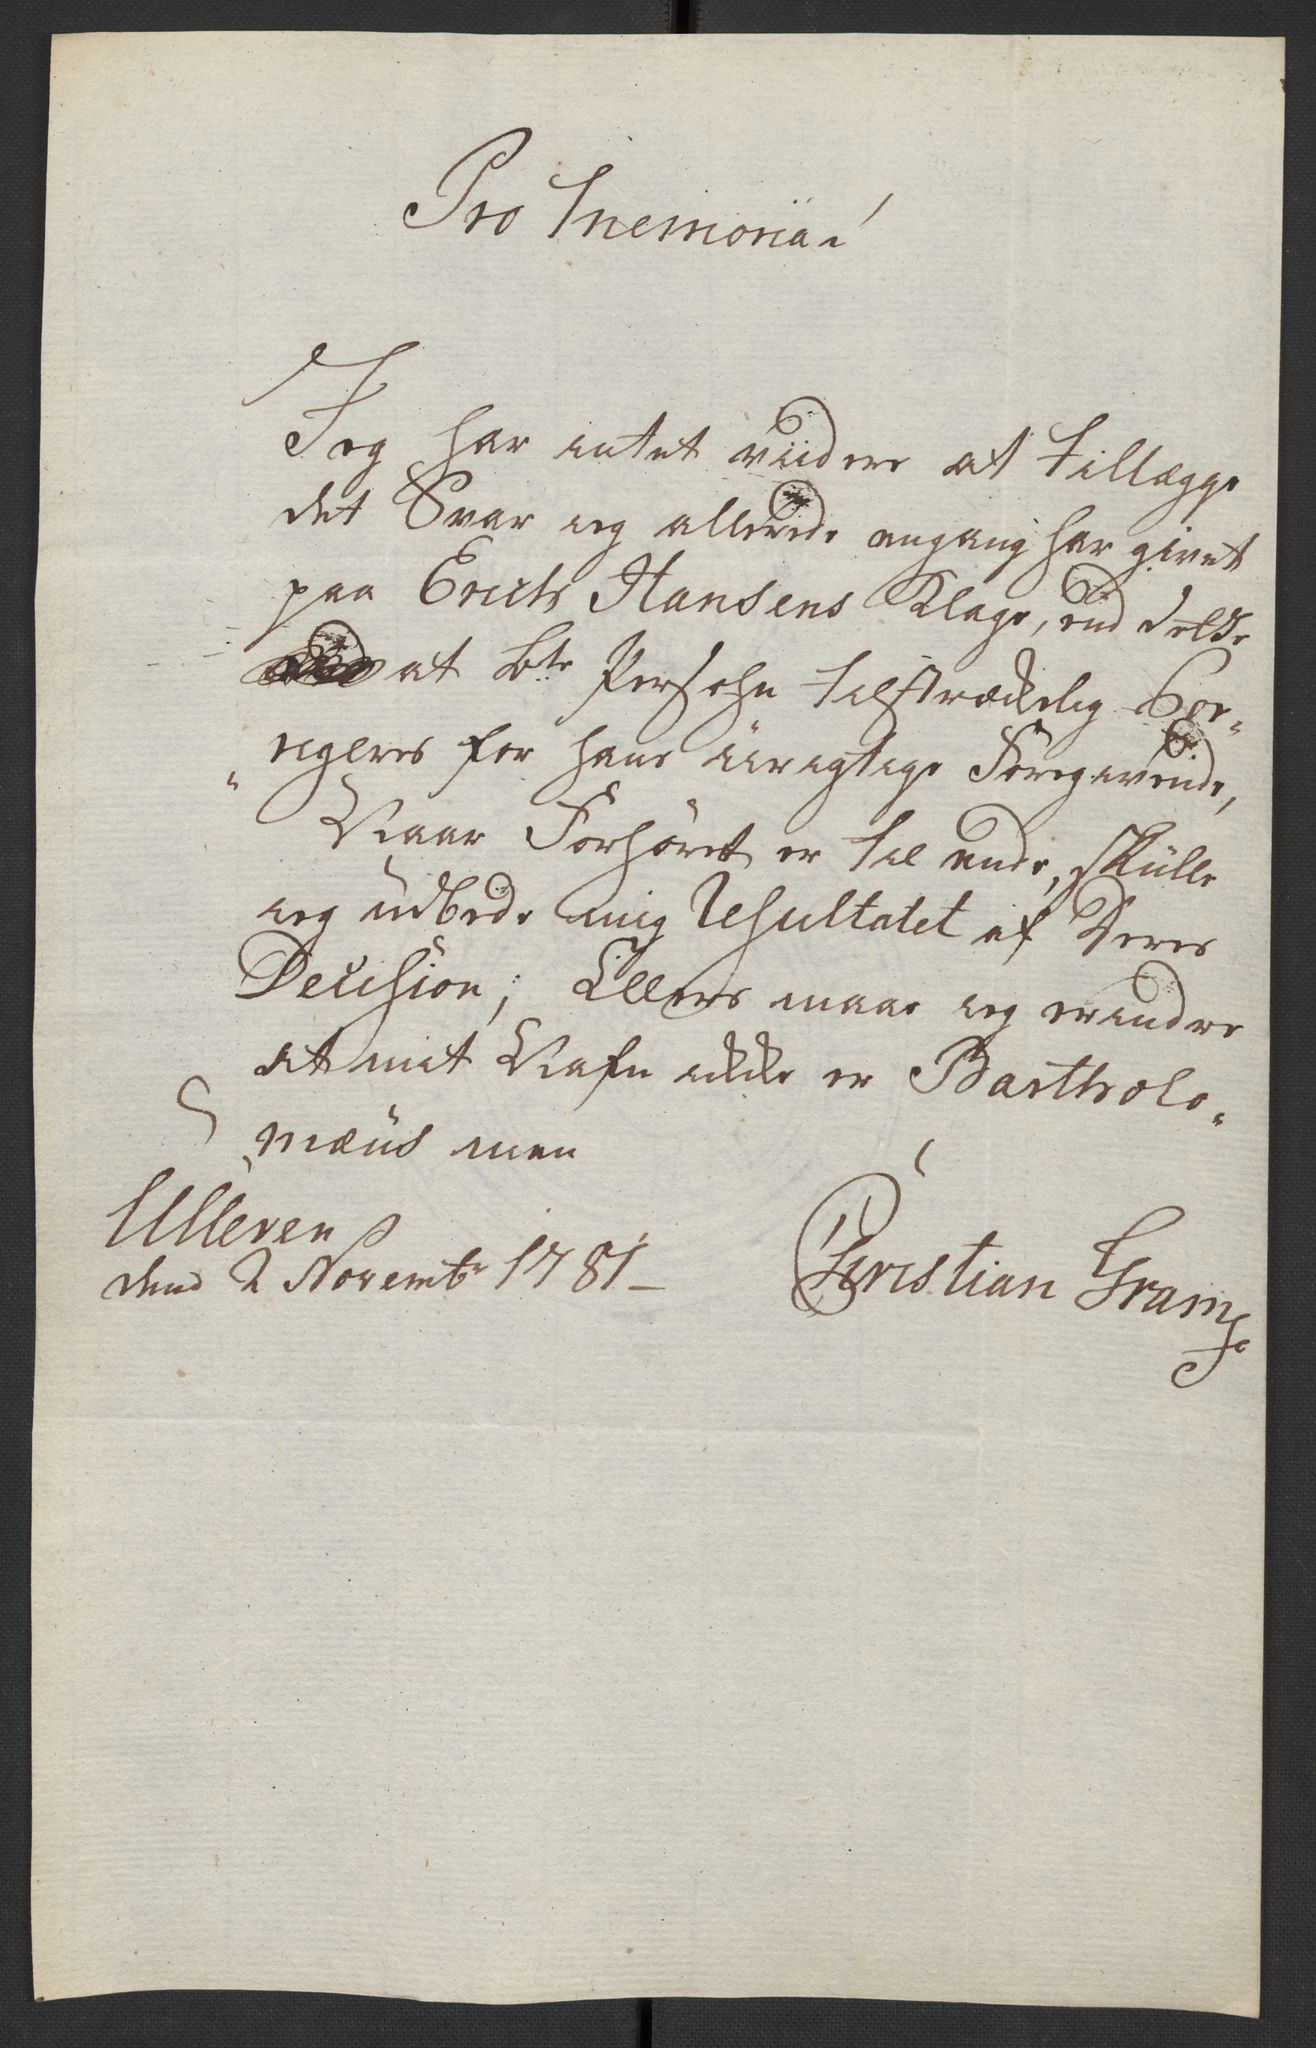 Pro Memoria!
Jeg har intet viidere at tillægge
det Svar ieg allerede engang har givet
paa Erich Hansens Klage, end dette
at bte Persohn tilstrækkelig Cor-
„rigeres for hans uúrigtige Foregivende,
Naar Forhöret er til ende, skulle
ieg udbede mig Resultatet af Deres
Decision; Ellers maae ieg erindre
at mit Nafn ikke er Bartholo-
„mæus men
Ulleren
dend 2 Novembr 1781 — Christian Gram